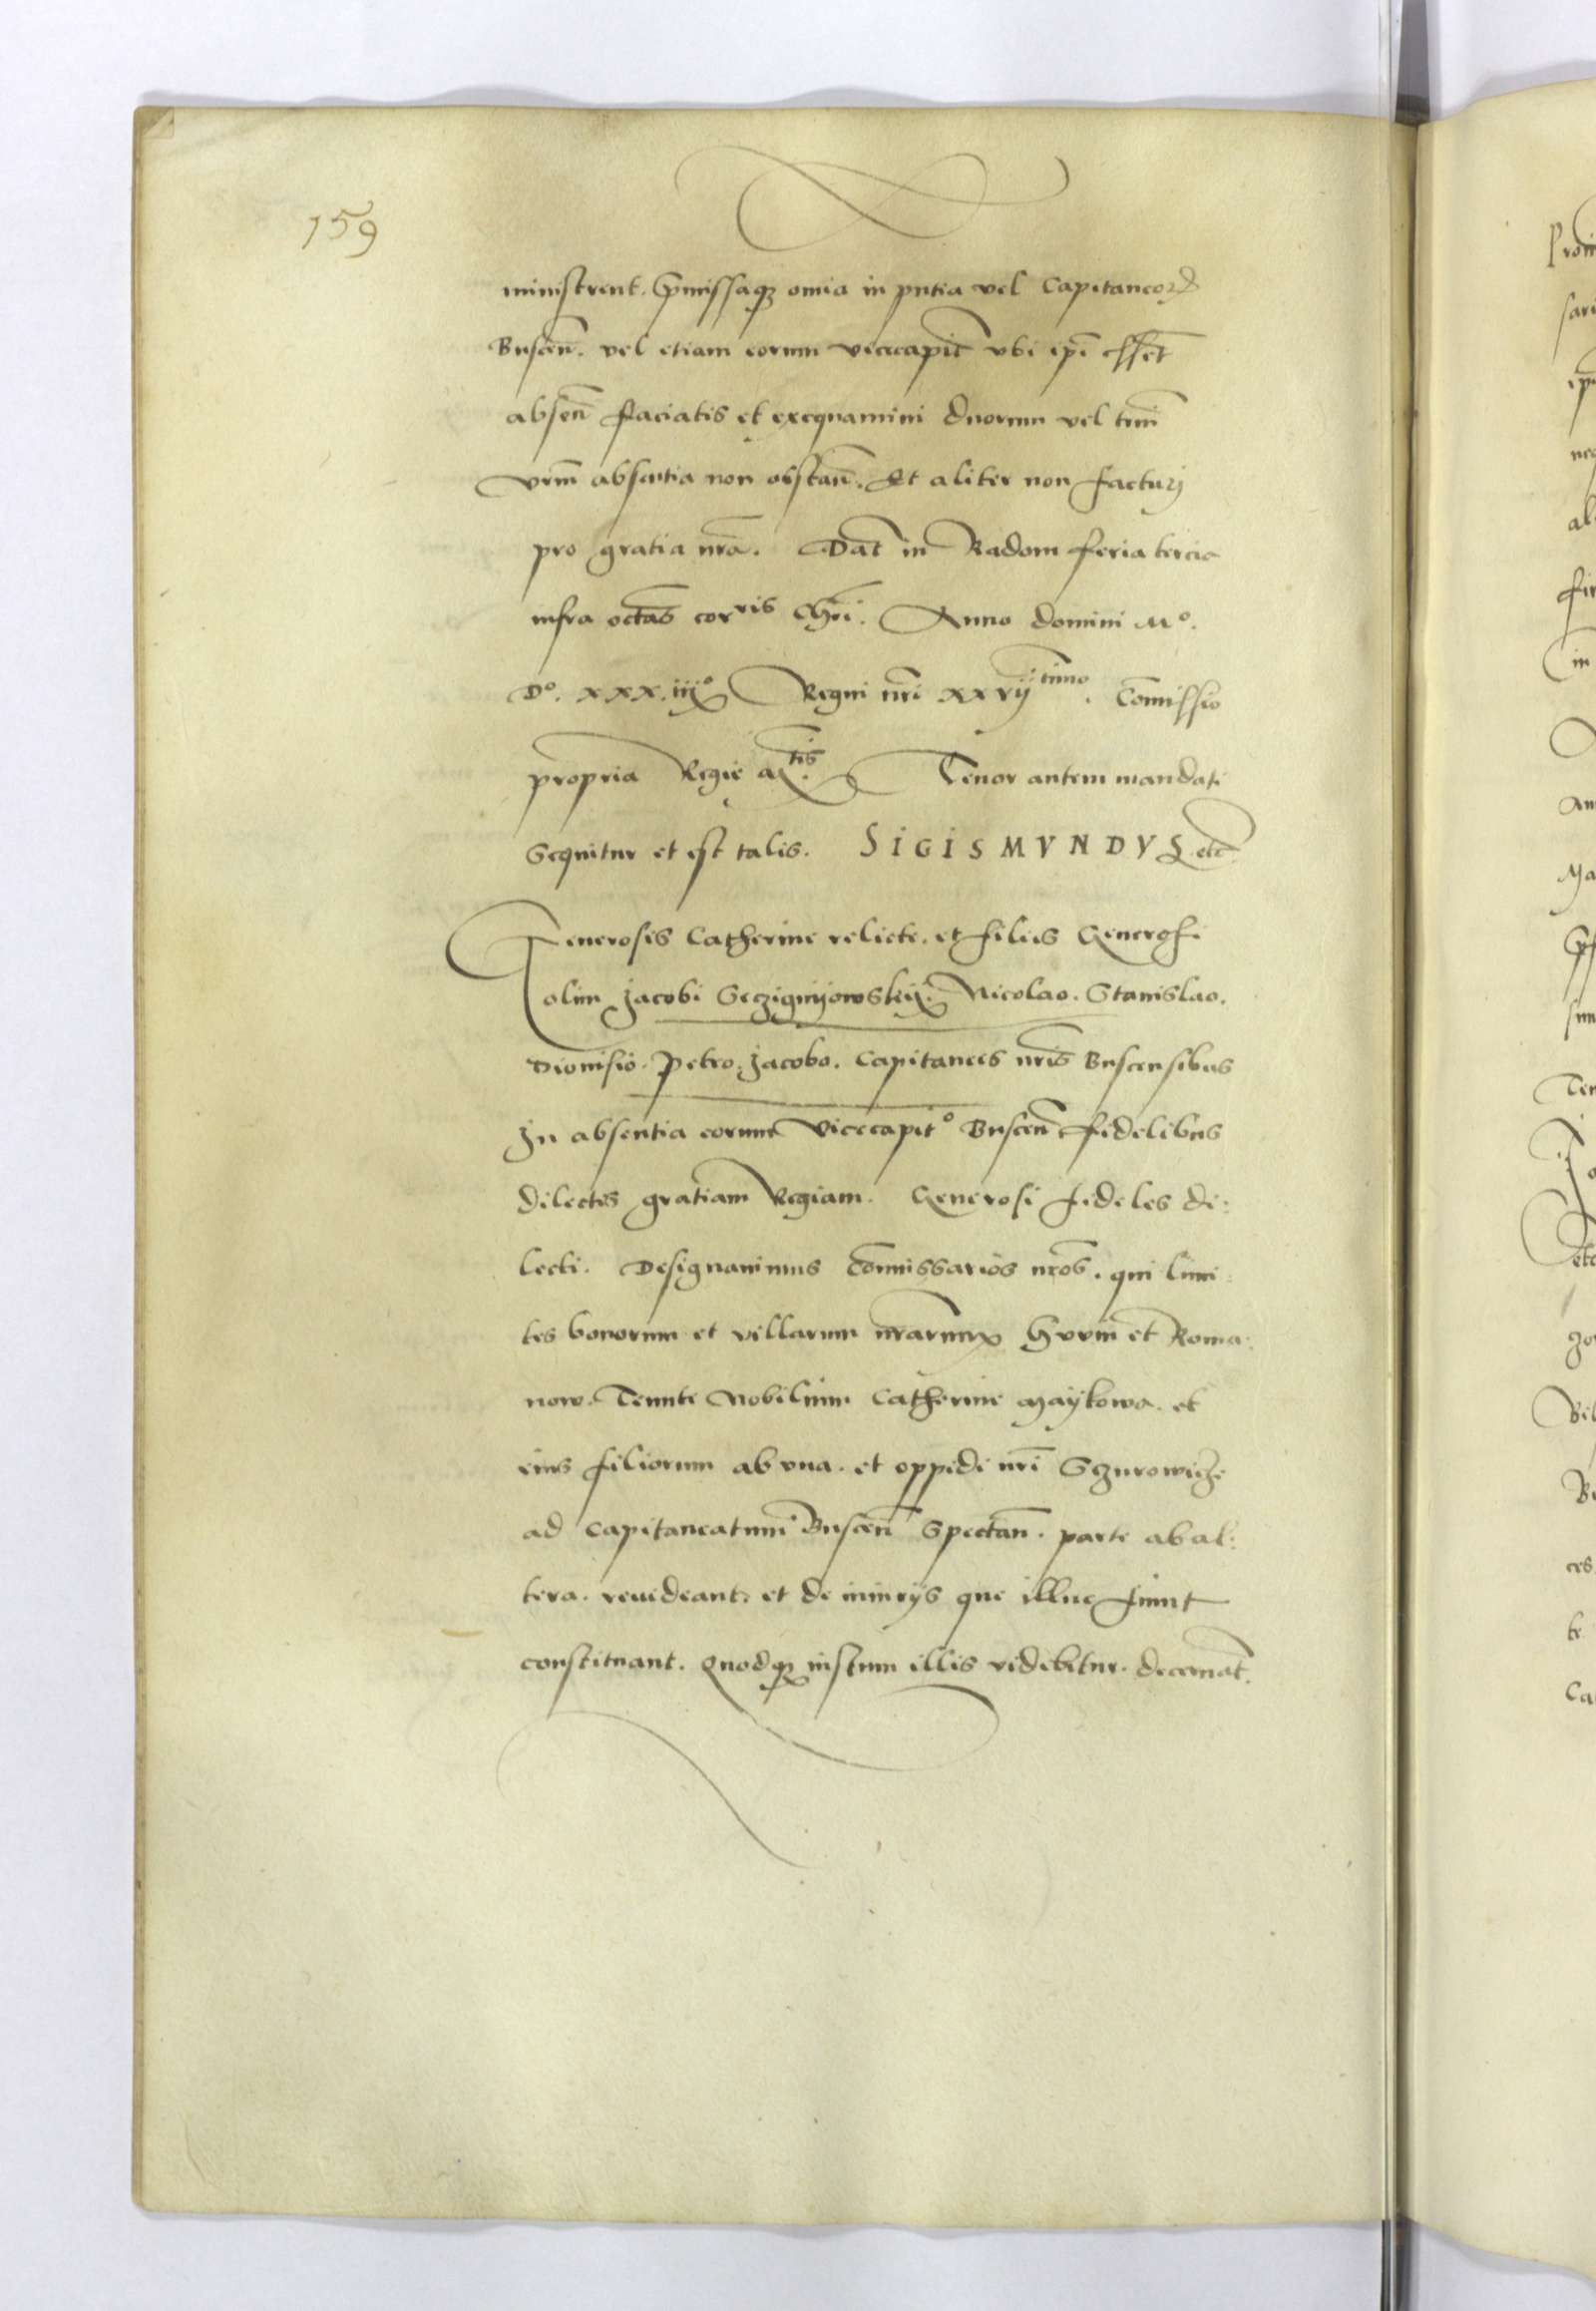 159
ministrent. Pmissaqz omia in pntia vel Capitaneor
Buscen. vel etiam eorum vicecapit vbi ipi essēt
absen faciatis et exequamini duorum vel trium
vrm absentia non obstan. Et aliter non facturi
pro gratia nra. Dat in Radom feria tercia
infra octas corpris Chri. Anno domini Mº.
Dº. xxx.iijº Regni nri xxvijtimo. Comissio
propria Regie Mtis. Tenor autem mandati
Sequitur et est talis. SIGISMVNDVS etc
Generosis Catherine relicte. et filiis Generosi
olim Jacobi Seczignyowskij. Nicolao. Stanislao.
Dionisio. Petro. Jacobo. Capitaneis nris Buscensibus
In absentia eorum vicecapitº Buscen fidelibus
dilectis gratiam Regiam. Generosi fideles di:
lecti. Designauimus Comissarios nros. qui limi
tes bonorum et villarum nrarum Hurin et Roma:
now. Tenute Nobilium Catherine Maykowa. et
eius filiorum ab vna. et oppidi nri Sczurowicze
ad Capitaneatum Buscen Spectan. parte ab al:
tera. reuideant. et de iniurijs que illuc fiunt
constituant. Quodqz iustum illis videbitur. decernāt.